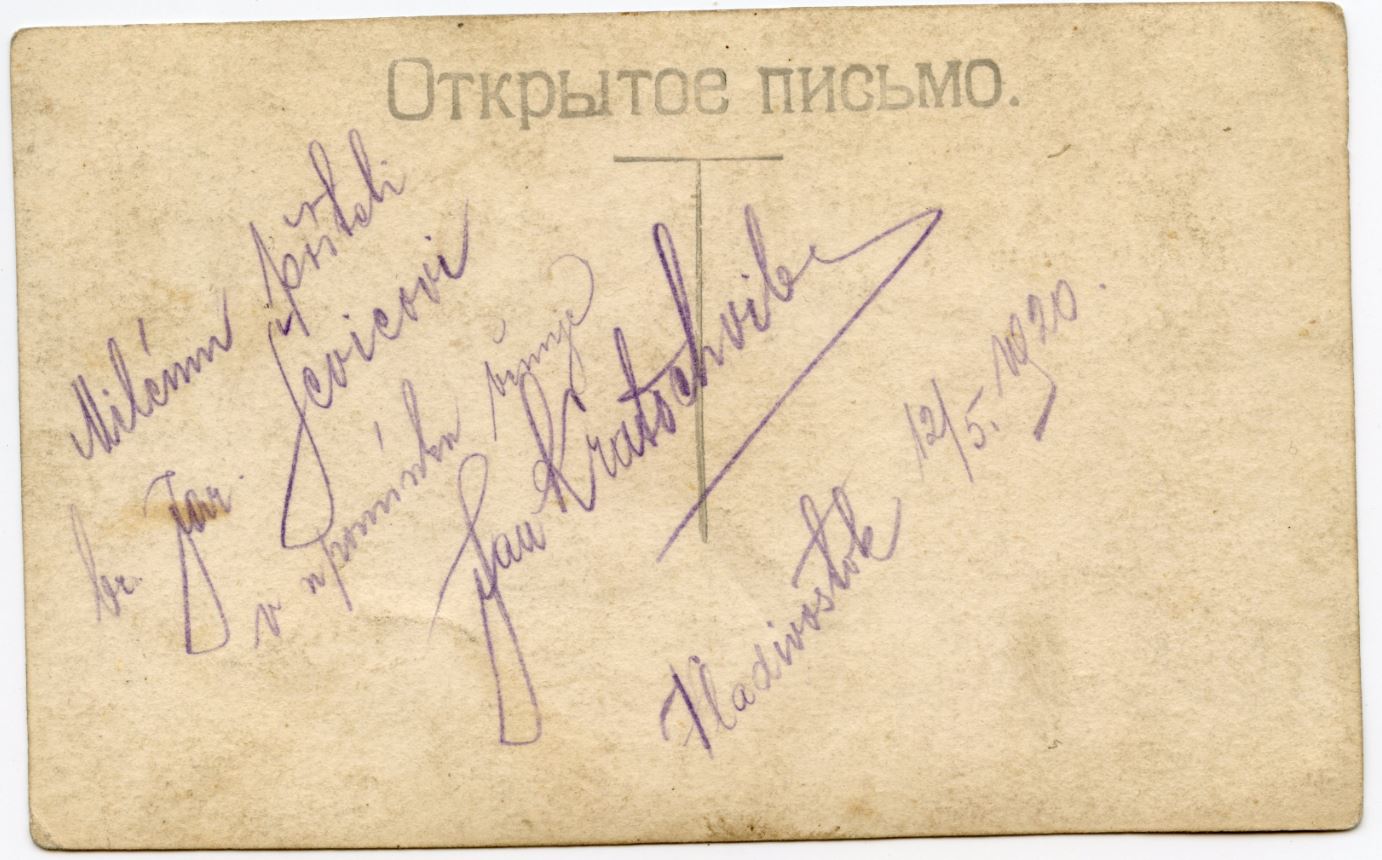 Открытое письмо.
Milému příteli
br. Jar. Ševicovi
v upomínku věnuje
Jan Kratochvíle
Vladivostok 12/5. 1920.